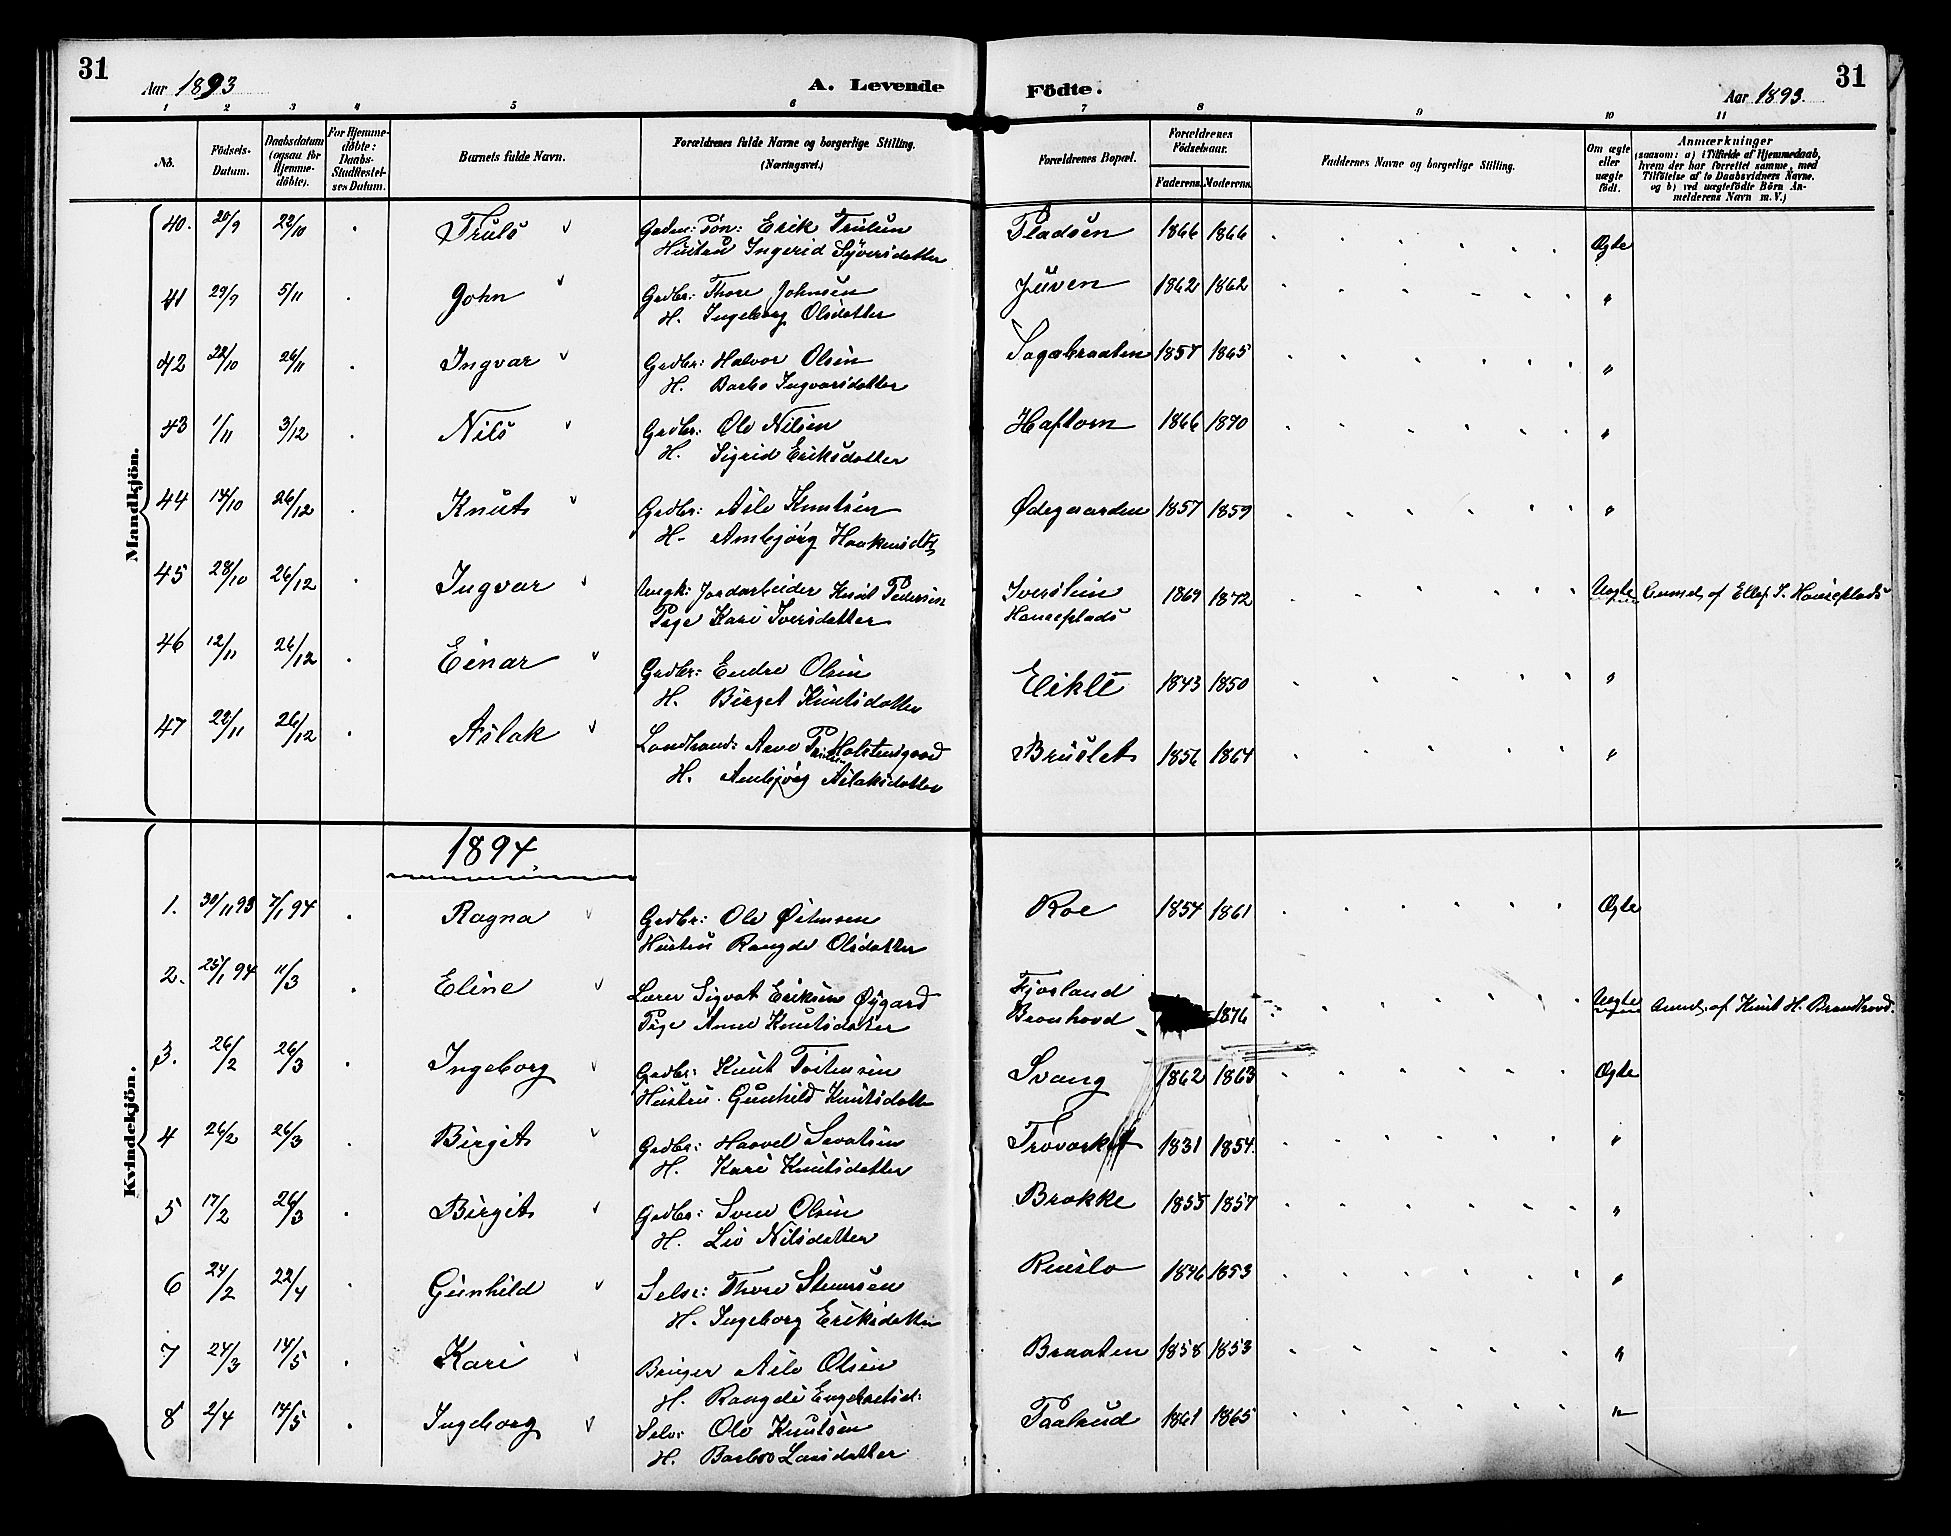 31
Aar 1893
A. Levende
Födte.
Aar 1893.
31
1 2 3 4 5 6 7 8 9 10 11
No.
Födsels-
Datum.
Daabsdatum
(ogsaa for
Hjemme-
døbte).
For Hjemme-
døbte:
Daabs-
Stadfæstel-
ses Datum.
Barnets fulde Navn.
Forældrenes fulde Navne og borgerlige Stilling.
(Næringsvei.)
Forældrenes Bopæl.
Forældrenes
Födselsaar.
Faderens. Moderens.
Faddernes Navne og borgerlige Stilling.
Om ægte
eller
uægte
födt.
Anmærkninger
(saasom: a) i Tilfælde af Hjemmedaab,
hvem der har forrettet samme, med
Tilföielse af to Daabsvidners Navne.
og b) ved uægtefödte Börn An-
melderens Navn m. V.)
Mandkjön.
40. 20/9 22/10 Truls Gaardm: Søn: Erik Trulsen Pladsen 1866 1866 Ægte
Hustru Ingerid Syversdatter
41 29/9 5/11 John Grdbr: Thore Johnsen Juven 1862 1862 "
H. Ingeborg Olsdatter
42 22/10 26/11 Ingvar Grdbr: Halvor Olsen Sagabraaten 1857 1865 "
H. Barbo Ingvarsdatter
43 1/11 3/12 Nils Grdbr: Ole Nilsen Haftorn 1866 1870 "
H. Sigrid Eriksdatter
44 14/10 26/12 Knut Grdbr: Asle Knutsen Ødegaarden 1857 1859 "
H. Ambjørg Haakensdtr
45 28/10 26/12 Ingvar Ungk: Jordarbeider Knut Pedersen Iverslien 1869 1872 Uægte Anmel. af Ellef T. Hanseplads
Pige Kari Iversdatter Hanseplads
46 12/11 26/12 Einar Grdbr: Endre Olsen Eikli 1843 1850 "
H. Birget Knutsdatter
47 22/11 26/12 Aslak Landhand: Arne P. Holstensgaard Bruslet 1856 1864 "
H. Ambjørg Aslaksdatter
Kvindekjön.
1894.
1. 30/11 93 7/1 94 Ragna Grdbr: Ole Østensen Roe 1854 1861 Ægte
Hustru Rangdi Olsdatter
2. 25/1 94 11/3 Eline Lærer Sigvat Eriksen Øygard Fjosland 1876 Uægte Anmel. af Knut H. Brandhovd.
Pige Anne Knutsdatter Bronhovd
3. 26/2 26/3 Ingeborg Grdbr: Knut Tostensen Svang 1862 1863 Ægte
Hustru. Gunhild Knutsdatter
4 26/2 26/3 Birgit Grdbr: Haavel Sevatsen 1831 1854. "
H. Kari Knutsdatter
5 17/2 26/3 Birgit Grdbr: Sven Olsen Brokke 1855 1857 "
H. Liv Nilsdatter
6 24/2 22/4 Gunhild Selve: Thore Steensen Ruuslo 1846 1853 "
H. Ingeborg Eriksdatter
7 24/3 14/5 Kari Bruger Asle Olsen Braaten 1858 1853 "
H. Rangdi Engebretsd:
8 2/4 14/5 Ingeborg Selv: Ole Knutsen Paalrud 1861 1865 "
H. Barbro Larsdatter